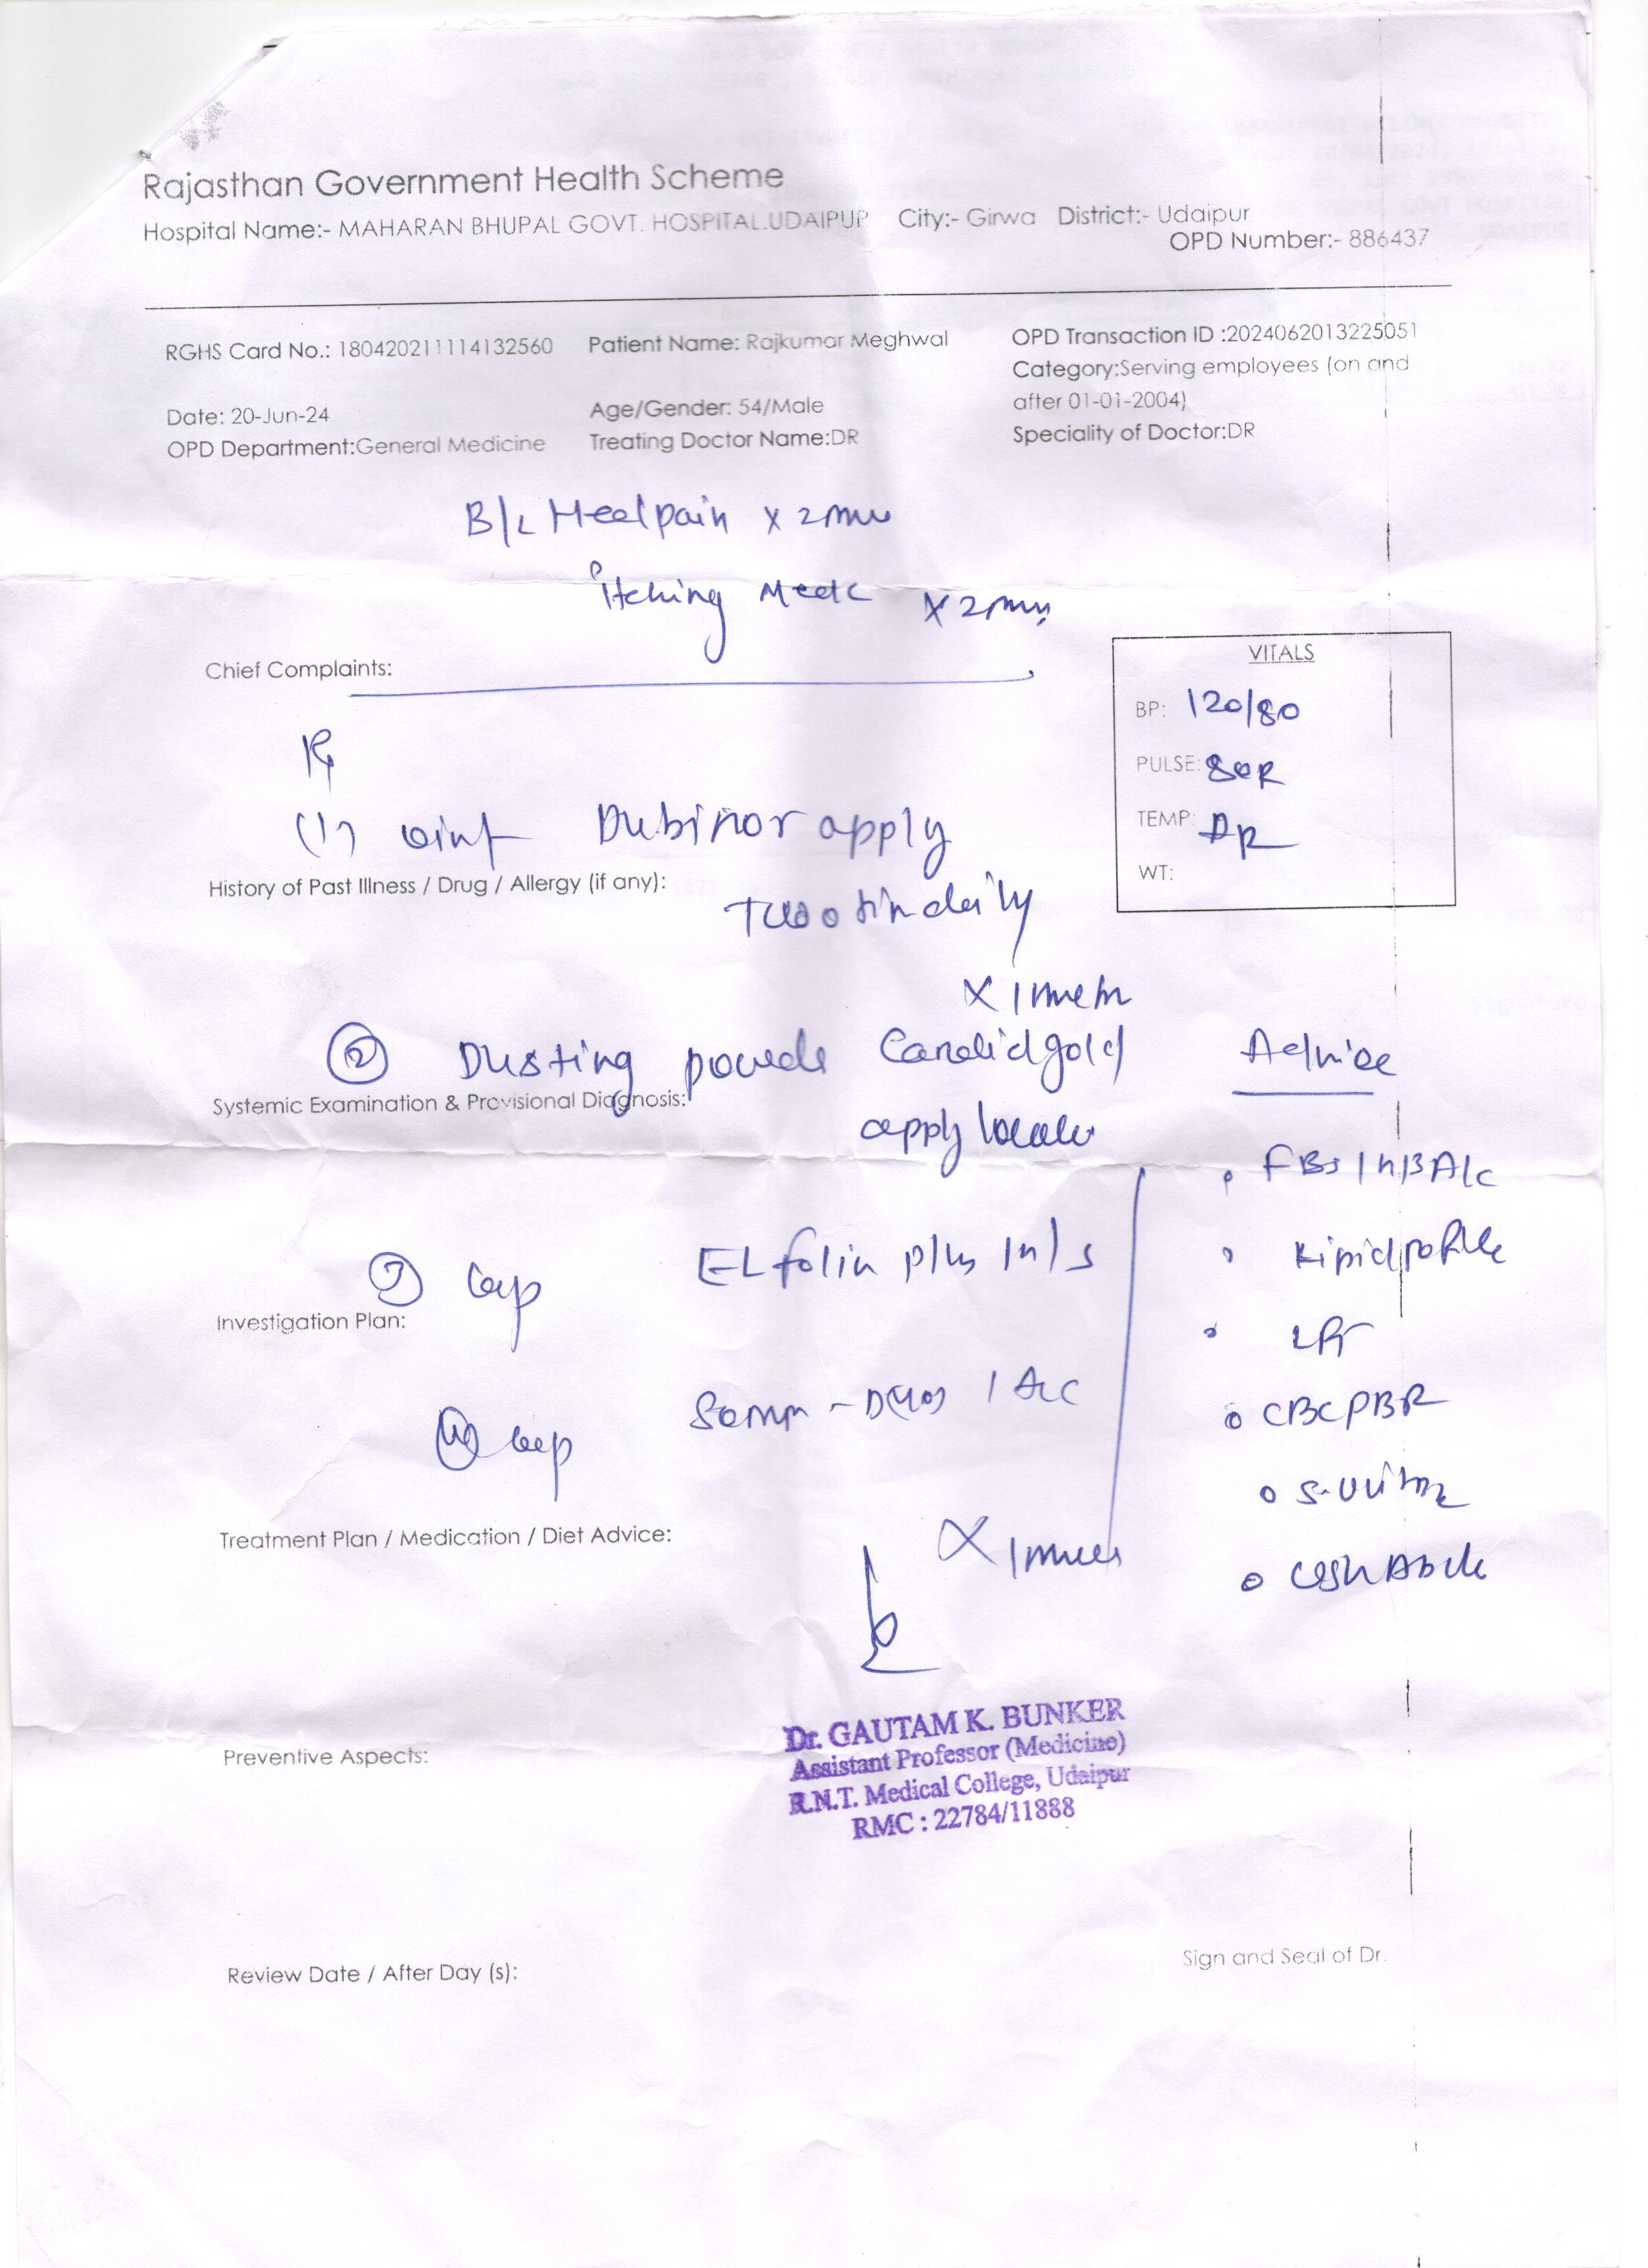 Rajasthan Government Health Scheme
Hospital Name:- MAHARAN BHUPAL GOVT. HOSPITAL.UDAIPUR City:- Girwa District:- Udaipur
OPD Number:- 886437
RGHS Card No.: 180420211114132560 Patient Name: Rajkumar Meghwal OPD Transaction ID :2024062013225051
Category:Serving employees (on and
Date: 20-Jun-24 Age/Gender: 54/Male after 01-01-2004)
OPD Department:General Medicine Treating Doctor Name:DR Speciality of Doctor:DR
B/L Heel pain x 2
itching x 2
Chief Complaints:
VITALS
BP: 120/80
Rx
PULSE:
(1) oint Dubinor apply
TEMP:
History of Past Illness / Drug / Allergy (if any):
WT:
Two daily
x 1
② Dusting powde Candid gold Advice
Systemic Examination & Provisional Diagnosis:
apply
FBS / HBA1c
cap EL folin plus 1 n/s
Lipid profile
Investigation Plan:
LFT
CBC PBR
cap
Treatment Plan / Medication / Diet Advice:
x 1
Dr. GAUTAM K. BUNKER
Assistant Professor (Medicine)
R.N.T. Medical College, Udaipur
RMC : 22784/11888
Preventive Aspects:
Sign and Seal of Dr.
Review Date / After Day (s):